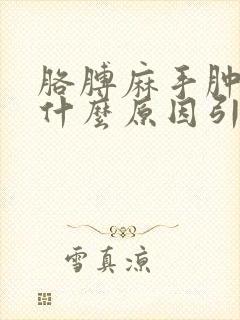 胳膊麻手肿
什麼原因引
雪真凉